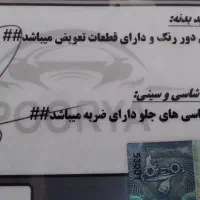 د بدنه:
دور رنگ و دارای قطعات تعویض میباشد##
شاسی و سینی:
اسی های جلو دارای ضربه میباشد##
POORYA
53001